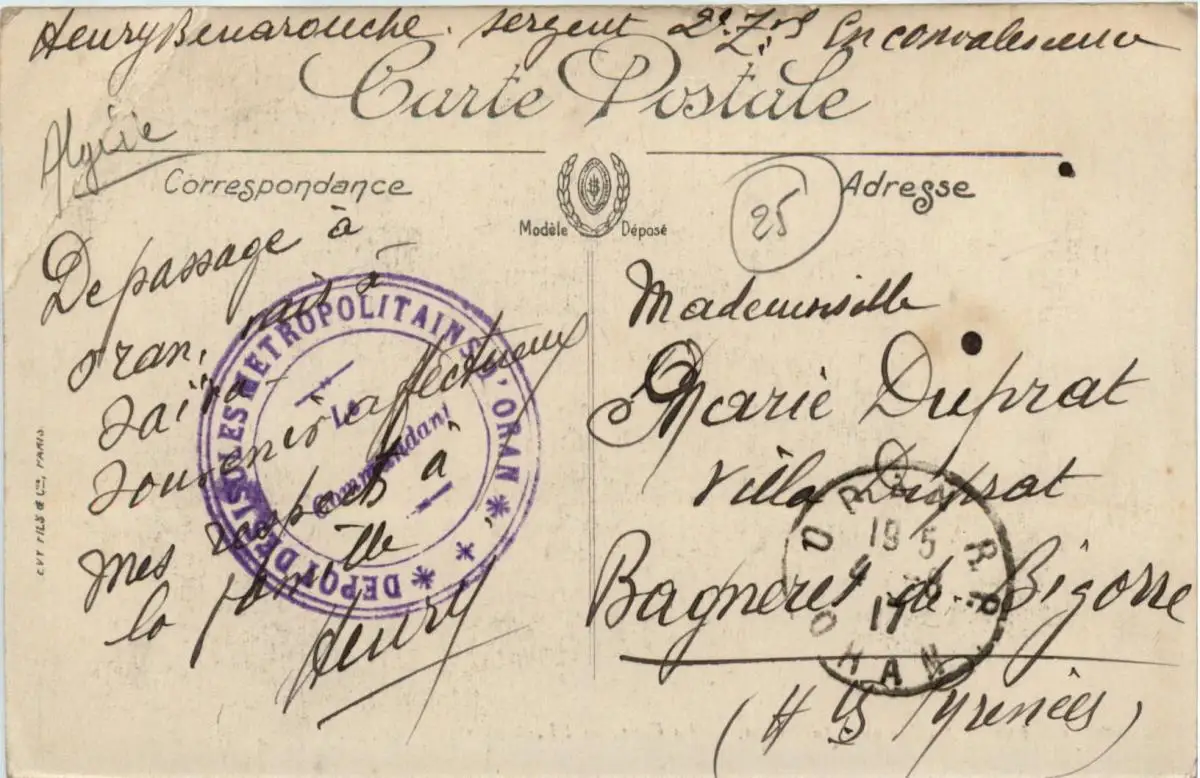 Henry Benarouche. sergent 2e Zs En convalescence
Carte Postale
Algérie
Correspondance
Modèle Déposé
25
Adresse
De passage à
oran, vais à
Saïda
Souvenirs affectueux
mes respects à
la famille
Henry
DEPOT DES ISOLES METROPOLITAINS D'ORAN
Le
Commandant
CVT FILS & Cie, PARIS.
Mademoiselle
Marie Duprat
Villa Duprat
Bagneres de Bigorre
(Htes Pyrenées)
19 5
17
ORAN R.P.
ORAN